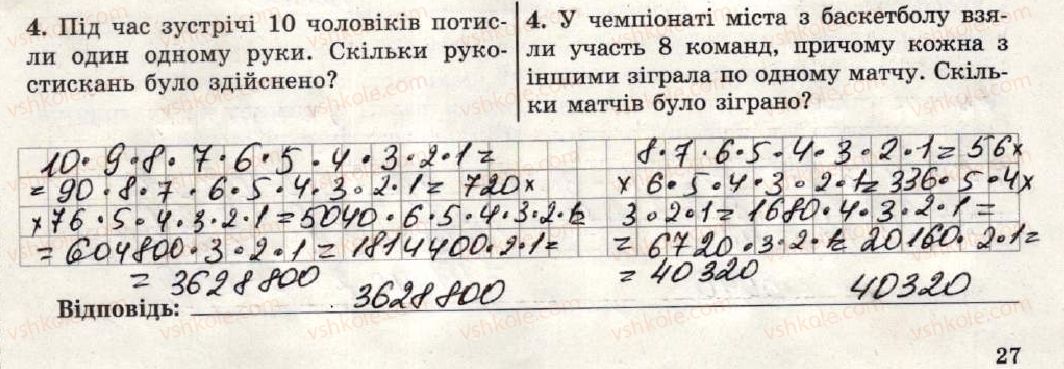 4. Під час зустрічі 10 чоловіків потис-
ли один одному руки. Скільки руко-
стискань було здійснено?
4. У чемпіонаті міста з баскетболу взя-
ли участь 8 команд, причому кожна з
іншими зіграла по одному матчу. Скіль-
ки матчів було зіграно?
10·9·8·7·6·5·4·3·2·1=
=90·8·7·6·5·4·3·2·1=720×
×76·5·4·3·2·1=5040·6·5·4·3·2·1=
=604800·3·2·1=1814400·2·1=
=3628800
8·7·6·5·4·3·2·1=56×
×6·5·4·3·2·1=336·5·4×
3·2·1=1680·4·3·2·1=
=6720·3·2·1=20160·2·1=
=40320
Відповідь: 3628800 40320
27
vshkole.com